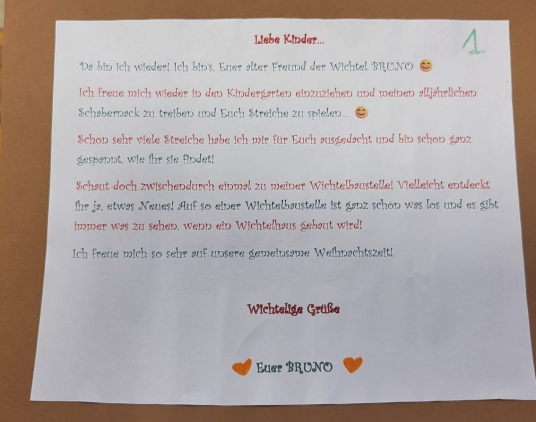 Liebe Kinder...
1.
Da bin ich wieder! Ich bin's, Euer alter Freund der Wichtel BRUNO 😊
Ich freue mich wieder in den Kindergarten einzuziehen und meinen alljährlichen
Schabernack zu treiben und Euch Streiche zu spielen... 😊
Schon sehr viele Streiche habe ich mir für Euch ausgedacht und bin schon ganz
gespannt, wie Ihr sie findet!
Schaut doch zwischendurch einmal zu meiner Wichtelbaustelle! Vielleicht entdeckt
Ihr ja, etwas Neues! Auf so einer Wichtelbaustelle ist ganz schön was los und es gibt
immer was zu sehen, wenn ein Wichtelhaus gebaut wird!
Ich freue mich so sehr auf unsere gemeinsame Weihnachtszeit!
Wichtelige Grüße
Euer BRUNO